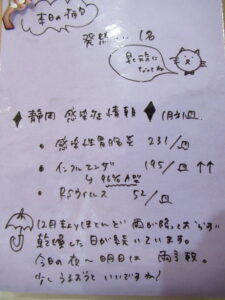 本日の病欠
発熱… 1名
早く元気に
なってね
◆ 静岡 感染症情報 ◆
・ 感染性胃腸炎 231/
・ インフルエンザ 195/ ↑↑
↳ 96% A型
・ RSウイルス 52/
12月末よりほとんど雨が降っておらず
乾燥した日が続いています。
今日の夜〜明日は 雨予報。
少しうるおうといいですね!